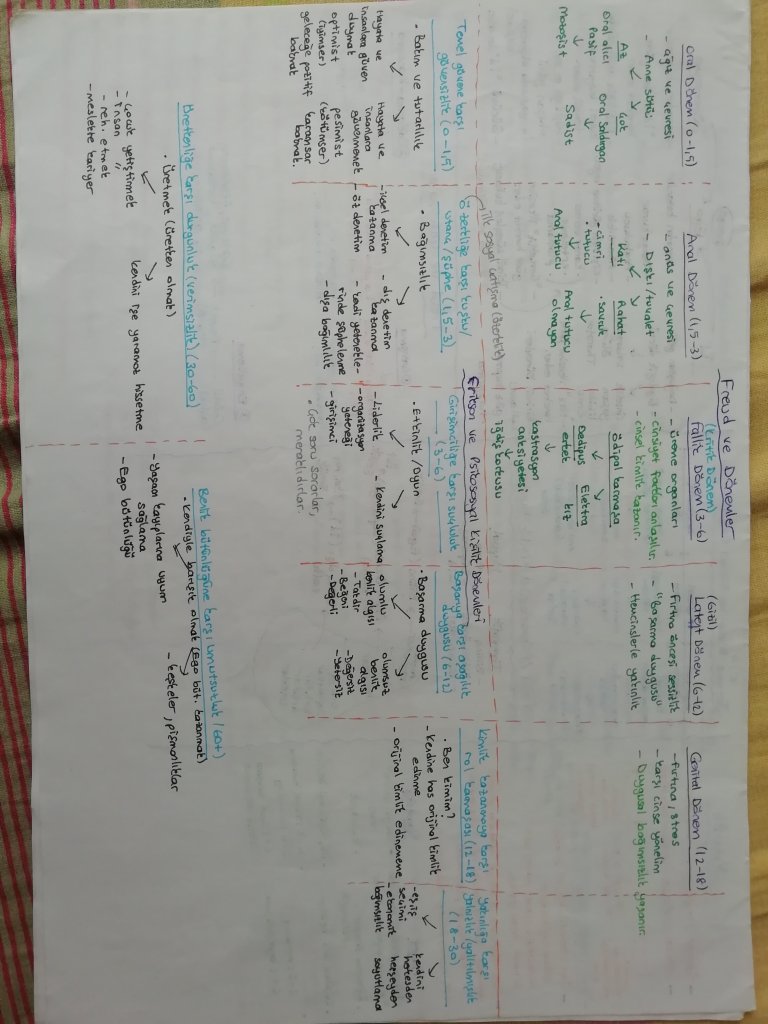 Freud ve Dönemler
Oral Dönem (0-1,5)
- ağız ve çevresi
- Anne sütü
Az Çok
Oral alıcı Oral saldırgan
Pasif
Mazoşist Sadist
Anal Dönem (1,5-3)
- anüs ve çevresi
- Dışkı/tuvalet
Katı Rahat
- cimri • savruk
• tutucu
Anal tutucu Anal tutucu olmayan
(Kritik Dönem)
Fallik Dönem (3-6)
- üreme organları
- cinsiyet farkları anlaşılır.
- cinsel kimlik kazanır.
Ödipal karmaşa
Oedipus Elektra
erkek kız
kastrasyon
anksiyetesi
iğdiş korkusu
(Gizil)
Latent Dönem (6-12)
- Fırtına öncesi sessizlik
- "Başarma duygusu"
- Hemcinslerle yakınlık
Genital Dönem (12-18)
- fırtına, stres
- karşı cinse yönelim
- Duygusal bağımsızlık yaşanır.
Erikson ve Psikososyal Kişilik Dönemleri
Temel güvene karşı
güvensizlik (0-1,5)
• Bakım ve tutarlılık
Hayata ve insanlara güven duymak
optimist (iyimser)
geleceğe pozitif bakmak
Hayata ve insanlara güvenmemek
pesimist (kötümser)
karamsar bakmak.
ilk sosyal çatışma (özerklik)
Özerkliğe karşı kuşku/
utanç/şüphe (1,5-3)
• Bağımsızlık
- içsel denetim kazanma
- öz denetim
- dış denetim kazanma
- kendi yetenekle-
rinde şüphelenme
- dışa bağımlılık
Girişimciliğe karşı suçluluk
(3-6)
• Etkinlik/Oyun
- Liderlik
- organizasyon
yeteneği
- girişimci
- kendini suçlama
• Çok soru sorarlar,
meraklıdırlar.
Başarıya karşı aşağılık
duygusu (6-12)
• Başarma duygusu
olumlu
benlik algısı
- Takdir
- Beğeni
- Değerli
olumsuz
benlik
algısı
- Değersiz
- Yetersiz
Kimlik kazanmaya karşı
rol karmaşası (12-18)
• Ben kimim?
- Kendine has orijinal kimlik
edinme
- orijinal kimlik edinememe
yakınlığa karşı
yalnızlık/yalıtılmışlık
(18-30)
- eş, iş
seçimi
- ekonomik
bağımsızlık
kendini
herkesden
herşeyden
soyutlama
Üretkenliğe karşı durgunluk (verimsizlik) (30-60)
• Üretmek (üretken olmak)
- Çocuk yetiştirmek
- insan "
- reh. etmek
- meslekte kariyer
kendini işe yaramaz hissetme
Benlik bütünlüğüne karşı umutsuzluk (60+)
• Kendiyle barışık olmak (Ego büt. kazanmak)
- Yaşam kayıplarına uyum
sağlama
- Ego bütünlüğü
- keşkeler, pişmanlıklar